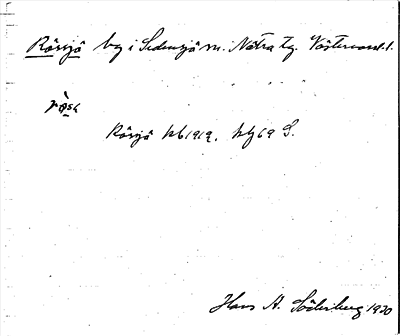 Rössjö by i Sidensjö sn. Nätra tg. Västernorrl. l.
Rössjö kb 1919.
Hans A. Söderberg 1920